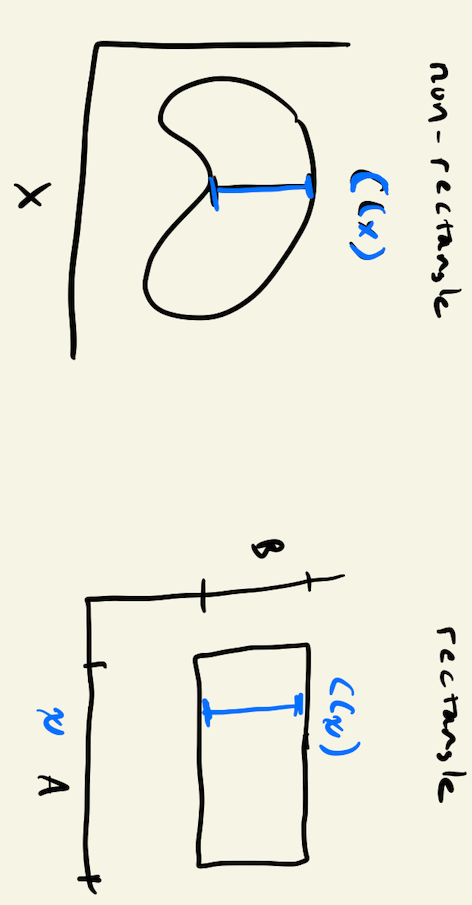 non-rectangle
C(x)
X
rectangle
B
C(x)
x
A